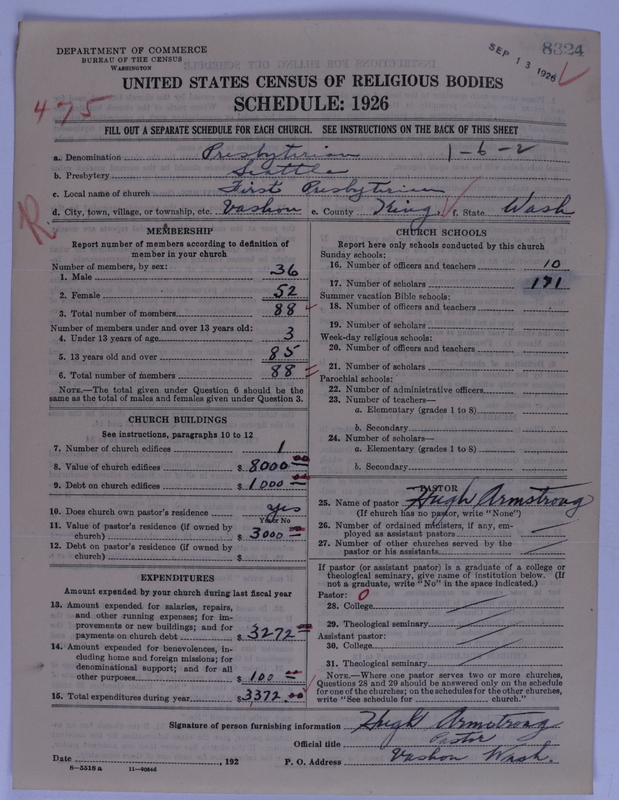 DEPARTMENT OF COMMERCE
BUREAU OF THE CENSUS
WASHINGTON
SEP 13 1926
8324
UNITED STATES CENSUS OF RELIGIOUS BODIES
475
SCHEDULE: 1926
FILL OUT A SEPARATE SCHEDULE FOR EACH CHURCH. SEE INSTRUCTIONS ON THE BACK OF THIS SHEET
a. Denomination Presbyterian 1-6-2
b. Presbytery Seattle
c. Local name of church First Presbyterian
d. City, town, village, or township, etc. Vashon e. County King f. State Wash
R
MEMBERSHIP
Report number of members according to definition of
member in your church
Number of members, by sex:
1. Male 36
2. Female 52
3. Total number of members 88
Number of members under and over 13 years old:
4. Under 13 years of age 3
5. 13 years old and over 85
6. Total number of members 88
NOTE.—The total given under Question 6 should be the
same as the total of males and females given under Question 3.
CHURCH BUILDINGS
See instructions, paragraphs 10 to 12
7. Number of church edifices 1
8. Value of church edifices $ 8000 00
9. Debt on church edifices $ 1000 00
10. Does church own pastor's residence yes
Yes or No
11. Value of pastor's residence (if owned by
church) $ 3000
12. Debt on pastor's residence (if owned by
church) $
EXPENDITURES
Amount expended by your church during last fiscal year
13. Amount expended for salaries, repairs,
and other running expenses; for im-
provements or new buildings; and for
payments on church debt $ 3272
14. Amount expended for benevolences, in-
cluding home and foreign missions; for
denominational support; and for all
other purposes $ 100
15. Total expenditures during year $ 3372.00
CHURCH SCHOOLS
Report here only schools conducted by this church
Sunday schools:
16. Number of officers and teachers 10
17. Number of scholars 171
Summer vacation Bible schools:
18. Number of officers and teachers
19. Number of scholars
Week-day religious schools:
20. Number of officers and teachers
21. Number of scholars
Parochial schools:
22. Number of administrative officers
23. Number of teachers—
a. Elementary (grades 1 to 8)
b. Secondary
24. Number of scholars—
a. Elementary (grades 1 to 8)
b. Secondary
PASTOR
25. Name of pastor Hugh Armstrong
(If church has no pastor, write "None")
26. Number of ordained ministers, if any, em-
ployed as assistant pastors
27. Number of other churches served by the
pastor or his assistants
If pastor (or assistant pastor) is a graduate of a college or
theological seminary, give name of institution below. (If
not a graduate, write "No" in the space indicated.)
Pastor: 0
28. College
29. Theological seminary
Assistant pastor:
30. College
31. Theological seminary
NOTE.—Where one pastor serves two or more churches,
Questions 28 and 29 should be answered only on the schedule
for one of the churches; on the schedules for the other churches,
write "See schedule for church."
Signature of person furnishing information Hugh Armstrong
Official title Pastor
Date , 192 P. O. Address Vashon Wash.
8—5518 a 11—9056d